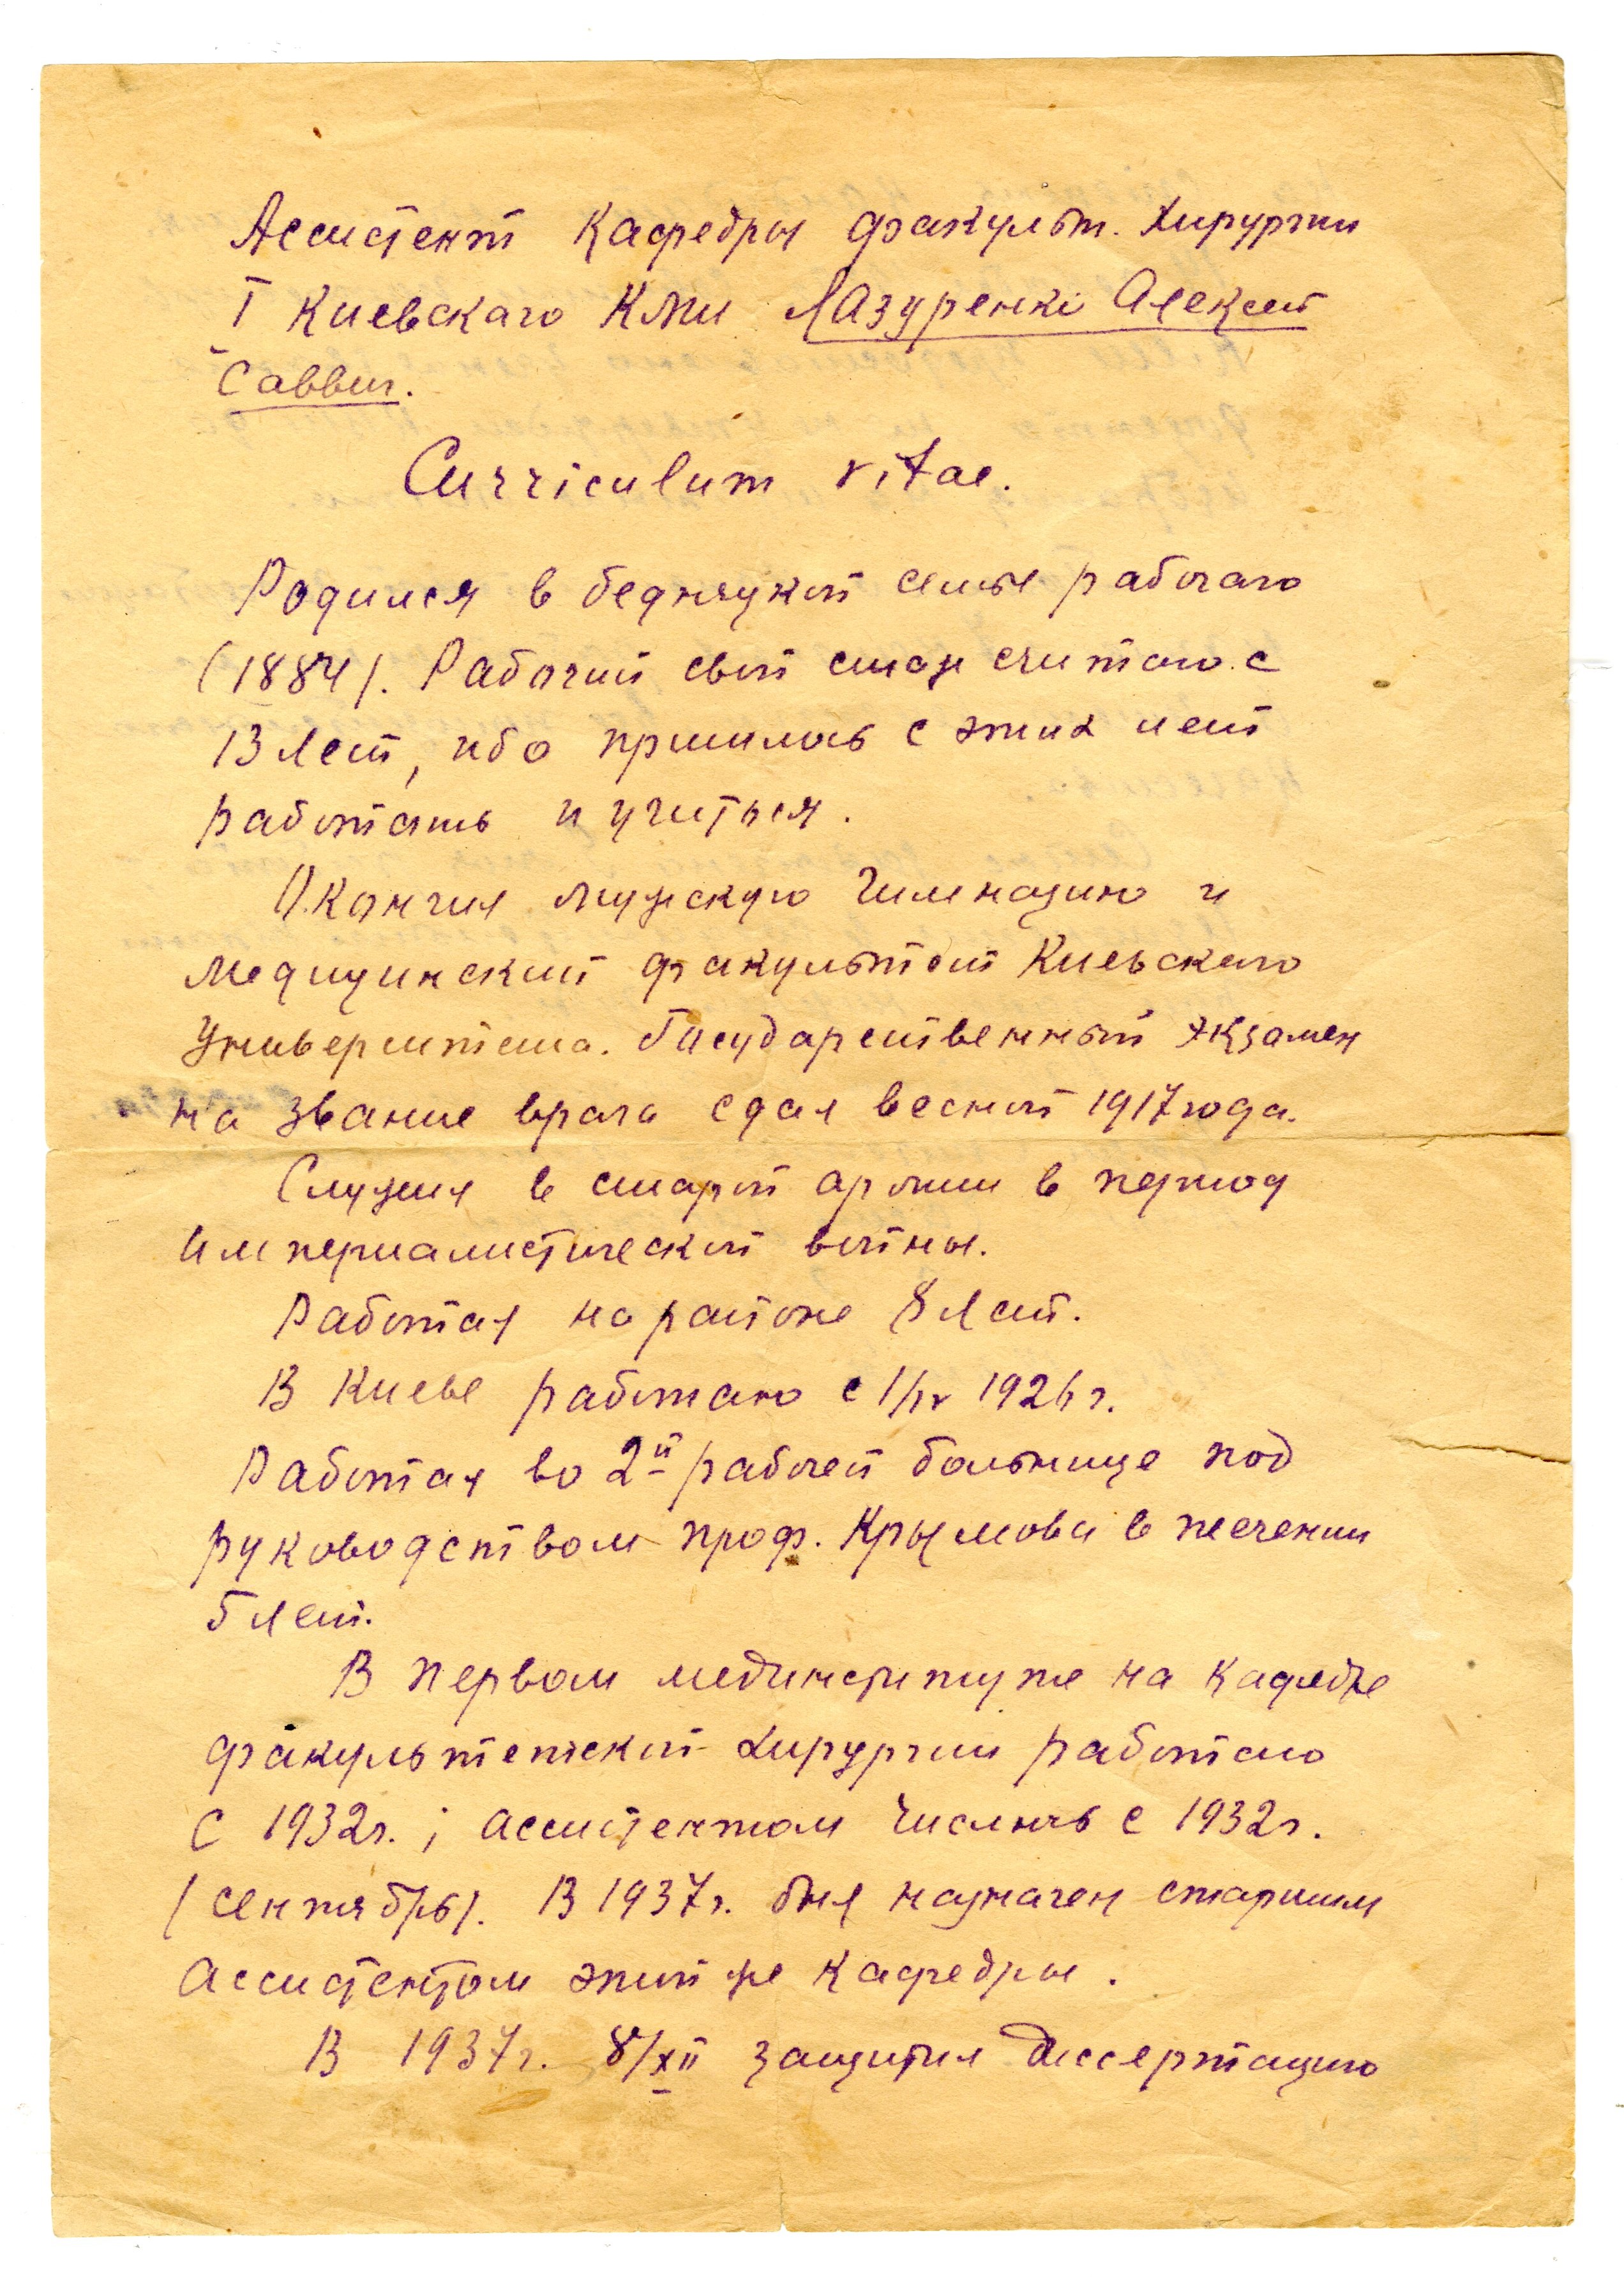 Ассистент Кафедры факульт. Хирургии
I Киевскаго КМИ Лазуренко Алексей
Саввич.
Curriculum vitae.
Родился в бедняцкой семье рабочаго
(1884). Рабочий свой стаж считаю с
13 лет, ибо пришлось с этих лет
работать и учиться.
Окончил мужскую Гимназию и
медицинский факультет Киевскаго
Университета. Государственный экзамен
на звание врача сдал весной 1917 года.
Служил в старой армии в период
империалистической войны.
Работал на районе 8 лет.
В Киеве работаю с 1/IV 1926 г.
Работал во 2й рабочей больнице под
руководством проф. Крымова в течении
5 лет.
В первом мединституте на кафедре
факультетской хирургии работаю
с 1932 г. ; ассистентом числюсь с 1932 г.
(сентябрь). В 1937 г. был назначен старшим
ассистентом этой же кафедры.
В 1937 г. 8/XII защитил диссертацию